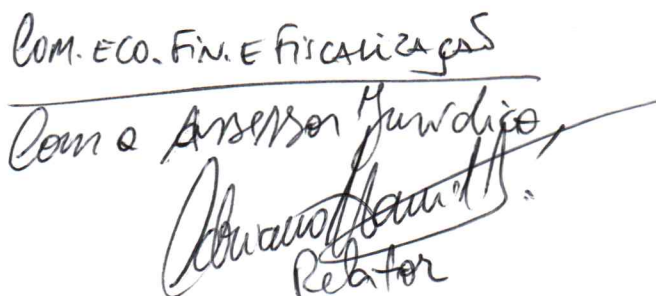 COM. ECO. FIN. E FISCALIZAÇÃO
Com o Assessor Jurídico,
Adriano
Relator